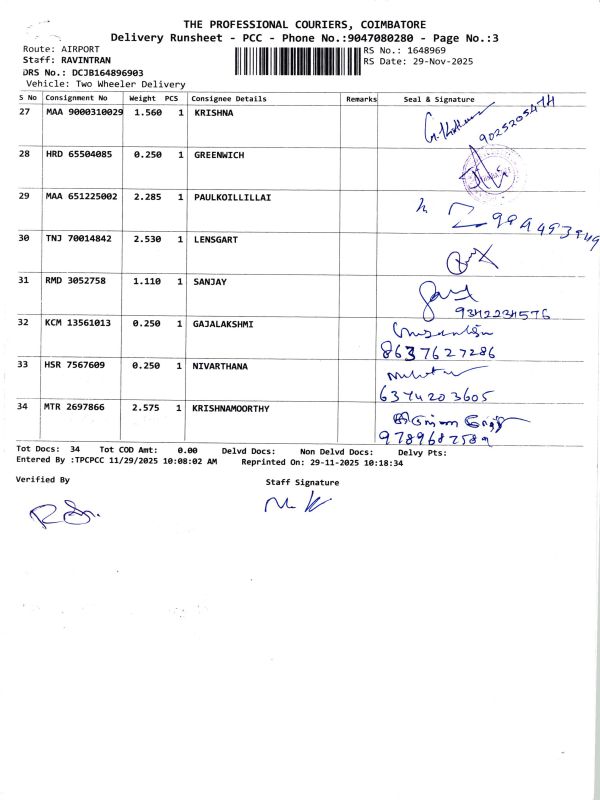 THE PROFESSIONAL COURIERS, COIMBATORE
Delivery Runsheet - PCC - Phone No.:9047080280 - Page No.:3
Route: AIRPORT
RS No.: 1648969
Staff: RAVINTRAN
RS Date: 29-Nov-2025
DRS No.: DCJB164896903
Vehicle: Two Wheeler Delivery
S No Consignment No Weight PCS Consignee Details Remarks Seal & Signature
27 MAA 9000310029 1.560 1 KRISHNA
9025205474
28 HRD 65504085 0.250 1 GREENWICH
29 MAA 651225002 2.285 1 PAULKOILLILLAI
30 TNJ 70014842 2.530 1 LENSGART
31 RMD 3052758 1.110 1 SANJAY
9342234576
32 KCM 13561013 0.250 1 GAJALAKSHMI
8637627286
33 HSR 7567609 0.250 1 NIVARTHANA
6374203605
34 MTR 2697866 2.575 1 KRISHNAMOORTHY
Tot Docs: 34 Tot COD Amt: 0.00 Delvd Docs: Non Delvd Docs: Delvy Pts:
Entered By :TPCPCC 11/29/2025 10:08:02 AM Reprinted On: 29-11-2025 10:18:34
Verified By
Staff Signature